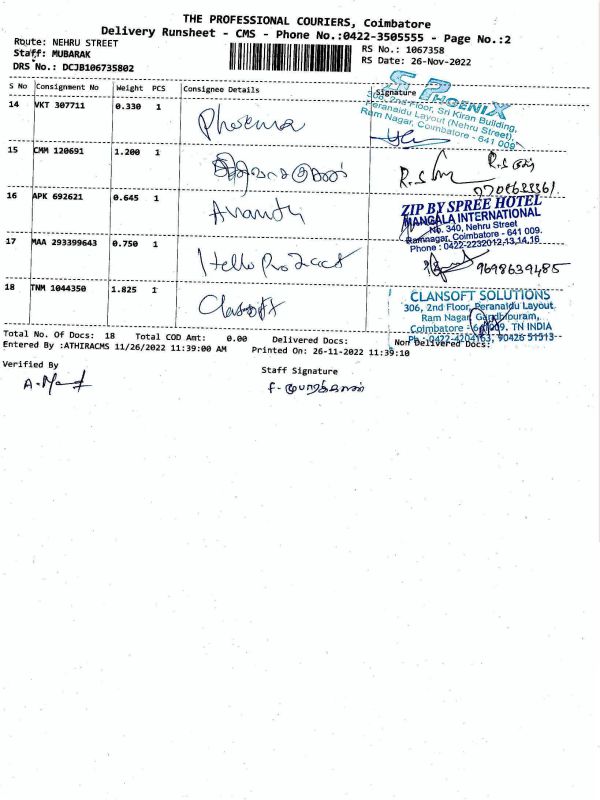 THE PROFESSIONAL COURIERS, Coimbatore
Delivery Runsheet - CMS - Phone No.:0422-3505555 - Page No.:2
Route: NEHRU STREET
Staff: MUBARAK
DRS No.: DCJB106735802
RS No.: 1067358
RS Date: 26-Nov-2022
S No Consignment No Weight PCS Consignee Details Signature
14 VKT 307711 0.330 1
PHOENIX
306, 2nd Floor, Sri Kiran Building,
Peranaidu Layout (Nehru Street),
Ram Nagar, Coimbatore - 641 009.
15 CMM 120691 1.200 1
16 APK 692621 0.645 1 Ananth
ZIP BY SPREE HOTEL
MANGALA INTERNATIONAL
No. 340, Nehru Street
Ramnagar, Coimbatore - 641 009.
Phone : 0422-2232012,13,14,16
17 MAA 293399643 0.750 1 Hello
9698639485
18 TNM 1044350 1.825 1 Clansoft
CLANSOFT SOLUTIONS
306, 2nd Floor, Peranaidu Layout
Ram Nagar, Gandhipuram,
Coimbatore - 641009. TN INDIA
Ph : 0422-4204163, 90426 51513
Total No. Of Docs: 18 Total COD Amt: 0.00 Delivered Docs: Non Delivered Docs:
Entered By :ATHIRACMS 11/26/2022 11:39:00 AM Printed On: 26-11-2022 11:39:10
Verified By
Staff Signature